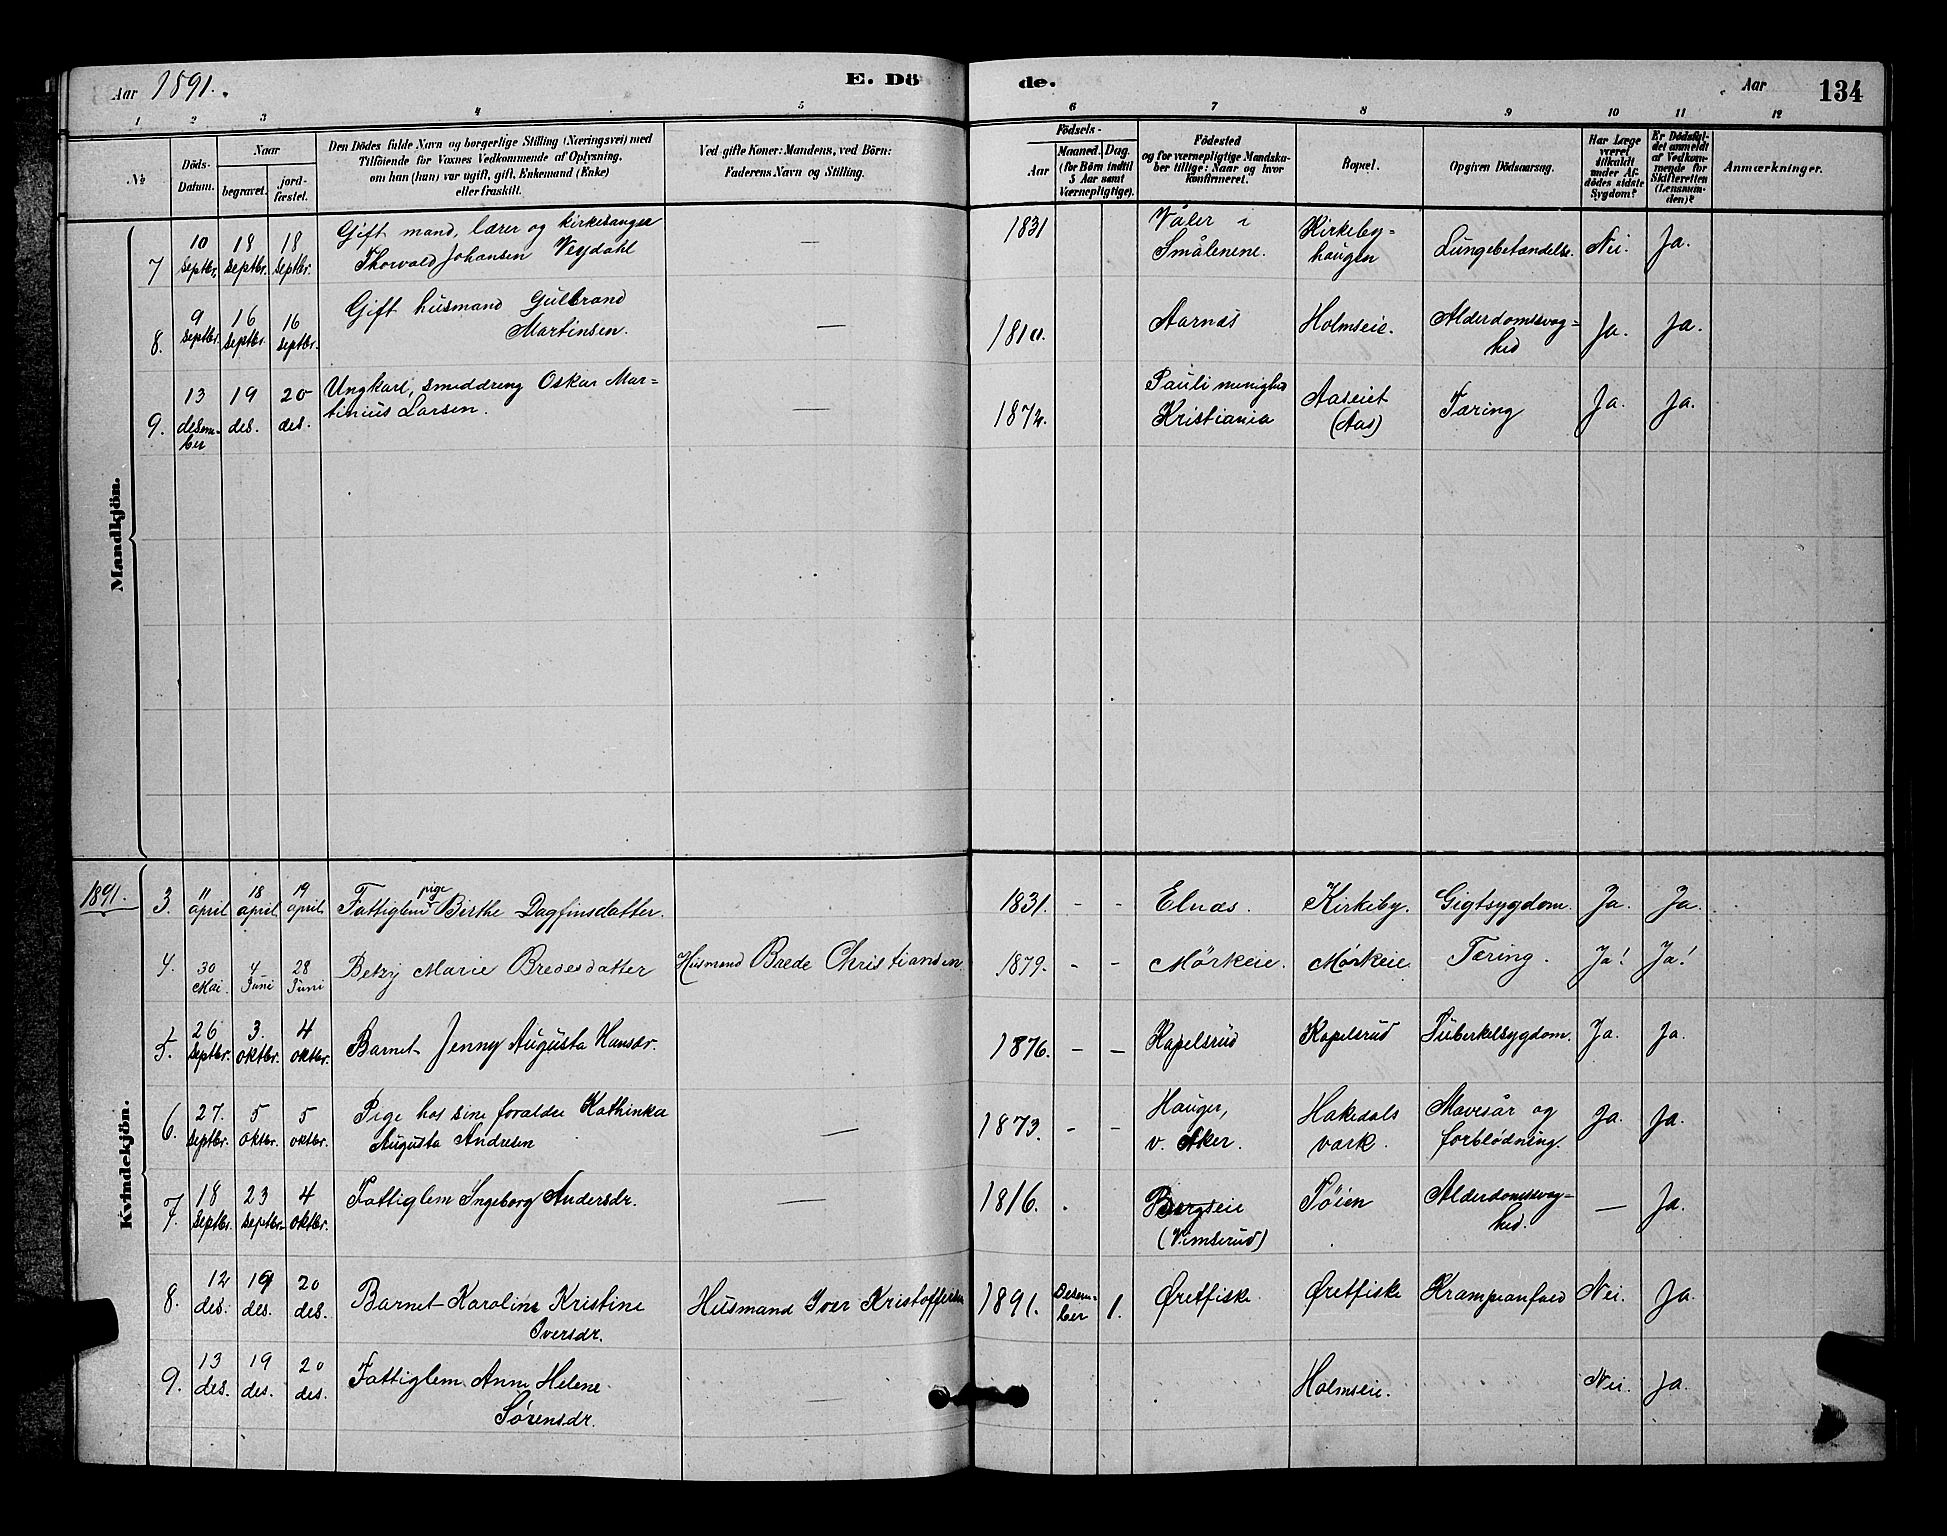 Aar 1891.
E. Dö
de.
Aar
134
1 2 3 4 5 6 7 8 9 10 11 12
№
Döds-Datum.
Naar
begravet.
jord-fæstet.
Den Dödes fulde Navn og borgerlige Stilling (Næringsvei) med
Tilföiende for Voxnes Vedkommende af Oplysning,
om han (hun) var ugift, gift, Enkemand (Enke)
eller fraskilt.
Ved gifte Koner: Mandens, ved Börn:
Faderens Navn og Stilling.
Födsels-
Aar
Maaned. Dag.
(for Börn indtil
5 Aar samt
Værnepligtige).
Födested
og for værnepligtige Mandska-
ber tillige: Naar og hvor
konfirmeret.
Bopæl.
Opgiven Dödsaarsag.
Har Læge
været
tilkaldt
under Af-
dødes sidste
Sygdom?
Er Dödsfal-
det anmeldt
af Vedkom-
mende for
Skifteretten
(Lensman-
den)?
Anmærkninger.
Mandkjön.
7 10 Septbr. 18 Septbr. 18 Septbr. Gift mand, lærer og kirkesanger
Thorvald Johansen Veydahl — 1831 Våler i
Smålenene. Kirkeby=
haugen Lungebetændelse. Nei. Ja.
8. 9 Septbr. 16 Septbr. 16 Septbr. Gift husmand Gulbrand
Martinsen. — 1810. Aarnæs Holmseie. Alderdomssvag=
hed Ja. Ja.
9. 13 desem-
ber 19 des. 20 des. Ungkarl, smeddreng Oskar Mar=
tinius Larsen. — 187 Pauli menighed
Kristiania Aaseiet
(Aas) Tæring Ja. Ja.
Kvindekjön.
1891. 3. 11 april 18 april 19 april Fattiglem pige Birthe Dagfinsdatter. 1831. - - Elnæs. Kirkeby. Gigtsygdom. Ja. Ja.
4. 30 Mai. 4 Juni 28 Juni Betzy Marie Bredesdatter Husmand Brede Christiansen 1879. - - Mörkeie. Mörkeie. Tæring. Ja! Ja!
5. 26 Septbr. 3. oktbr. 4 oktbr. Barnet Jenny Augusta Hansdr. 1876. - - Kapelsrud Kapelsrud Tuberkelsygdom. Ja. Ja.
6. 27. Septbr. 5 oktbr. 5 oktbr. Pige hos sine forældre Kathinka
Augusta Andresen — 1873. - - Hauger,
v. Aker. Hakedals
værk. Mavesår og
forblødning. Ja. Ja.
7. 18 Septbr. 23 Septbr. 4 oktbr. Fattiglem Ingeborg Andersdr. — 1816. Bergseie
(Vimserud) Tøien Alderdomssvag=
hed. — Ja.
8. 12 des. 19 des. 20 des. Barnet Karoline Kristine
Iversdr. Husmand Iver Kristoffersen 1891. Desem-
ber 1. Øretfiske Øretfiske Krampeanfald Nei. Ja.
9. 13 des. 19 des. 20 des. Fattiglem Anne Helene
Sørensdr. — Holmseie. Nei. Ja.